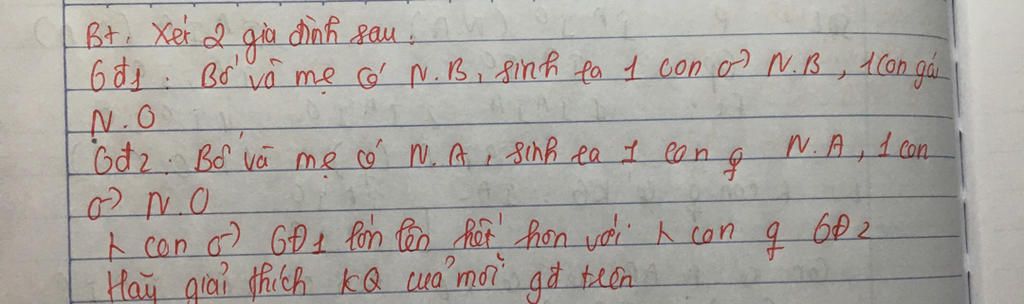 BT. Xét 2 gia đình sau.
Gđ1: Bố và mẹ có N.B, sinh ra 1 con ♂ N.B, 1 con gái
N.O
Gđ2: Bố và mẹ có N.A, sinh ra 1 con ♀ N.A, 1 con
♂ N.O
K con ♂ GĐ1 lớn lên kết hôn với K con ♀ GĐ2
Hãy giải thích KQ của mỗi gđ trên